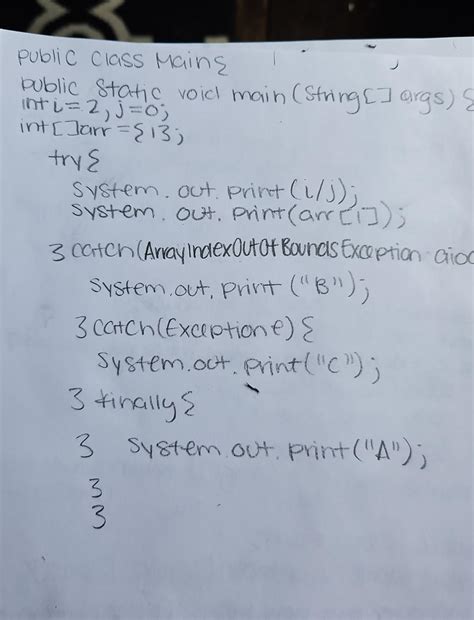 public class Main{
public static void main(String[] args) {
int i= 2, j=0;
int []arr = {1};
try{
system.out.print(i/j);
system.out.print(arr[i]);
} catch(ArrayIndexOutOfBoundsException aioo
system.out.print ("B");
} catch(Exception e) {
system.out.print("C");
} finally{
} system.out.print("A");
}
}